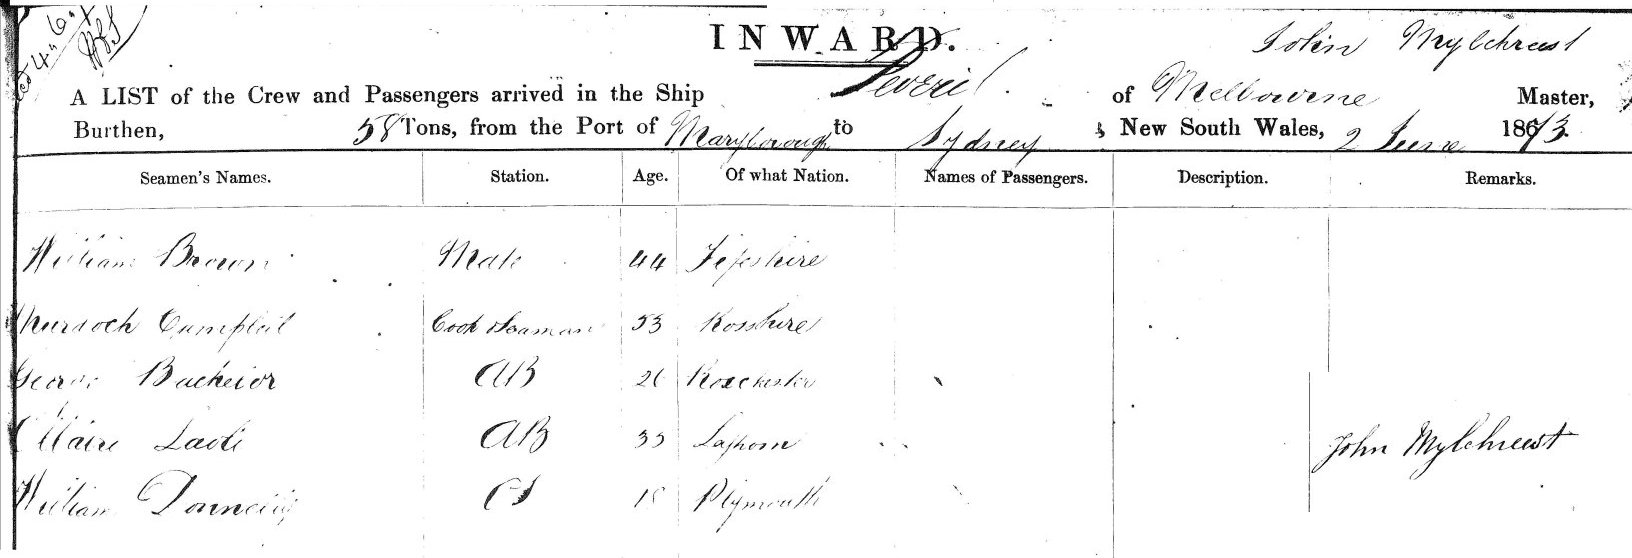 INWARD.
John Mylchreest
A LIST of the Crew and Passengers arrived in the Ship Peveril of Melbourne Master,
Burthen, 58 Tons, from the Port of Maryborough to Sydney New South Wales, 2 June 1873.
Seamen's Names. Station. Age. Of what Nation. Names of Passengers. Description. Remarks.
William Brown Mate 44 Fifeshire
Murdoch Campbell Cook & Seaman 53 Rosshire
George Bachelor AB 26 Rochester
AB 35
John Mylchreest
William Donnelly OS 18 Plymouth